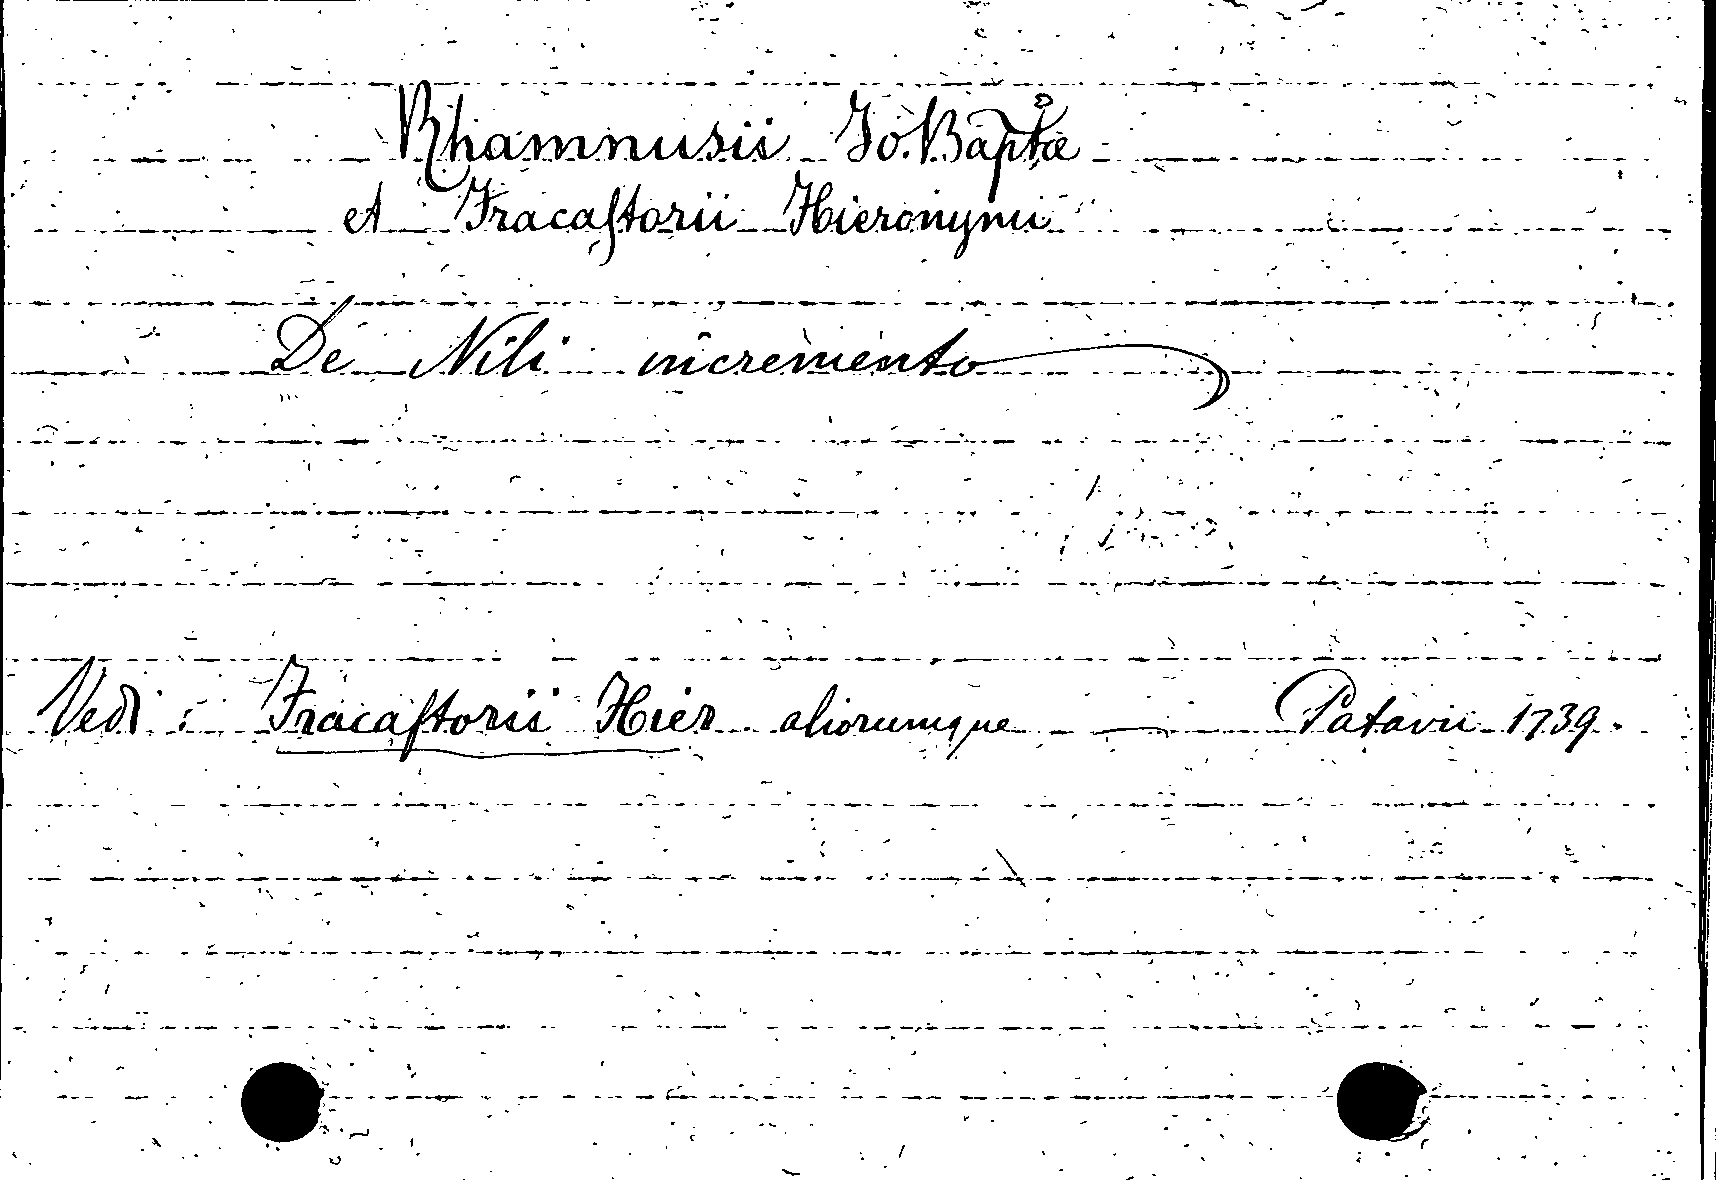 Rhamnusii Jo. Baptæ
et Fracaſtorii Hieronymi
De Nili incremento
Vedi: Fracaſtorii Hier aliorumque — Patavii 1739.